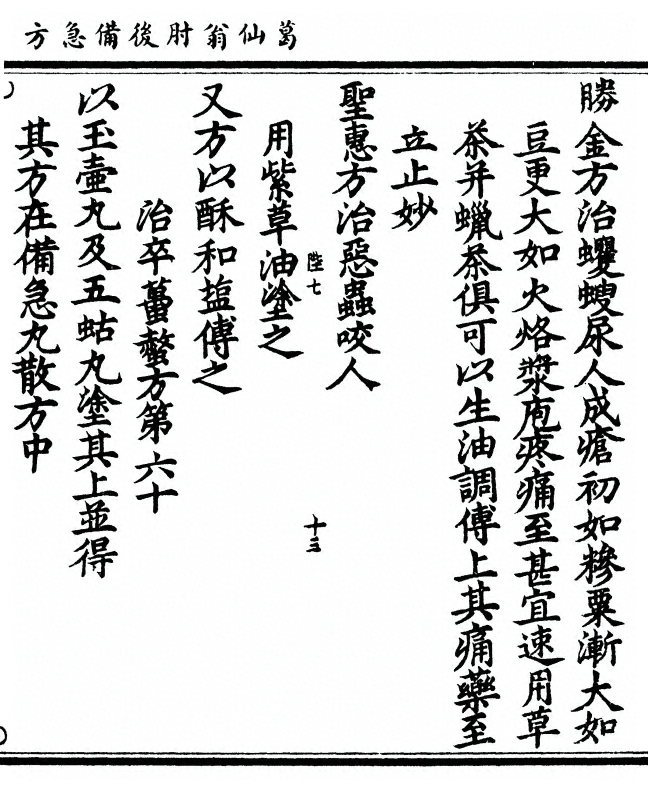 葛仙翁肘後備急方
勝金方治蠼螋尿人成瘡初如糝粟漸大如
豆更大如火烙漿庖疼痛至甚宜速用草
茶并蠟茶俱可以生油調傅上其痛藥至
立止妙
聖惠方治惡蟲咬人
陛七
十三
用紫草油塗之
又方以酥和塩傅之
治卒蠆螫方第六十
以玉壷丸及五蛄丸塗其上並得
其方在備急丸散方中